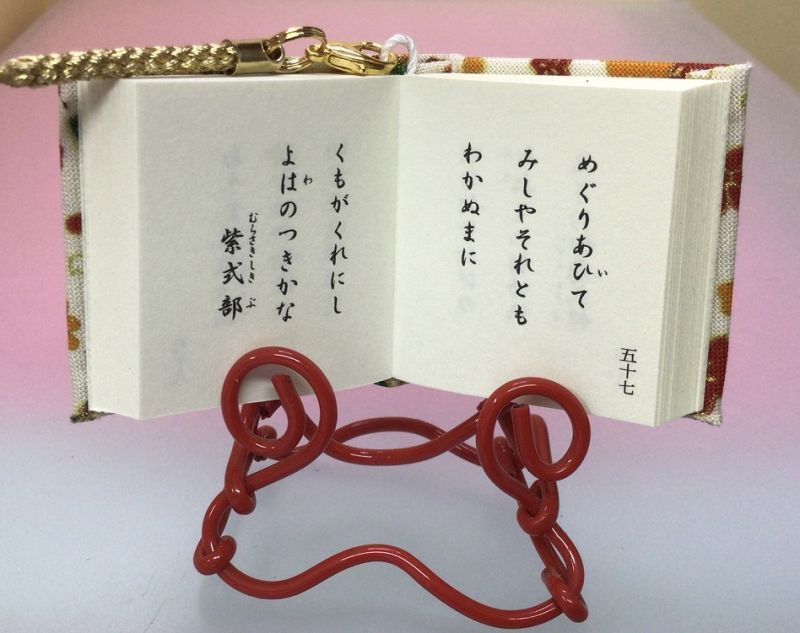 五十七
めぐりあひて
い
みしやそれとも
わかぬまに
くもがくれにし
よはのつきかな
わ
紫式部
むらさきしきぶ